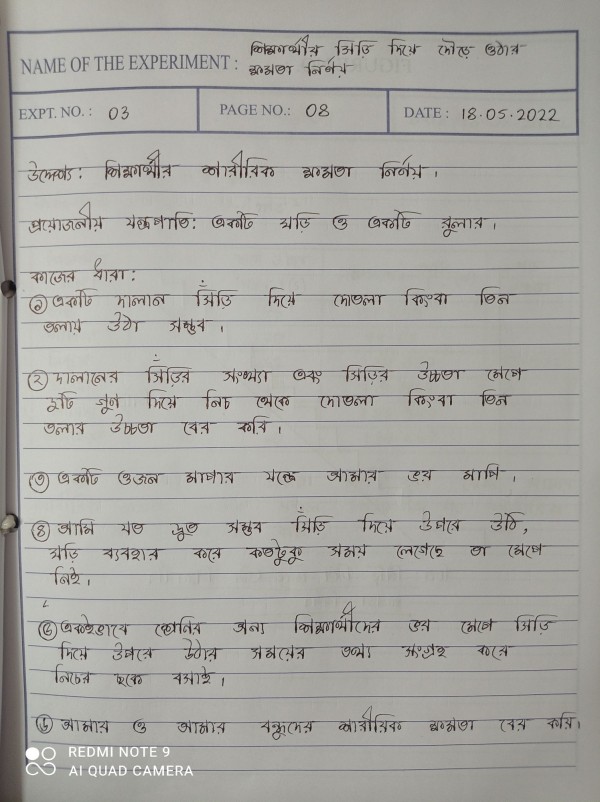 শিক্ষার্থীর সিড়ি দিয়ে দৌড়ে ওঠার
NAME OF THE EXPERIMENT : ক্ষমতা নির্ণয়
EXPT. NO. : 03 PAGE NO.: 08 DATE : 18.05.2022
উদ্দেশ্য: শিক্ষার্থীর শারীরিক ক্ষমতা নির্ণয়।
প্রয়োজনীয় যন্ত্রপাতি: একটি ঘড়ি ও একটি রুলার।
কাজের ধারা:
১ একটি দালান সিঁড়ি দিয়ে দোতলা কিংবা তিন
তলায় উঠা সম্ভব।
২ দালানের সিঁড়ির সংখ্যা এবং সিড়ির উচ্চতা মেপে
দুটি গুন দিয়ে নিচ থেকে দোতলা কিংবা তিন
তলার উচ্চতা বের করি।
৩ একটি ওজন মাপার যন্ত্রে আমার ভর মাপি।
৪ আমি যত দ্রুত সম্ভব সিঁড়ি দিয়ে উপরে উঠি,
ঘড়ি ব্যবহার করে কতটুকু সময় লেগেছে তা মেপে
নিই।
৫ একইভাবে শ্রেনির অন্য শিক্ষার্থীদের ভর মেপে সিড়ি
দিয়ে উপরে উঠার সময়ের তথ্য সংগ্রহ করে
নিচের ছকে বসাই।
৬ আমার ও আমার বন্ধুদের শারীরিক ক্ষমতা বের করি।
REDMI NOTE 9
AI QUAD CAMERA